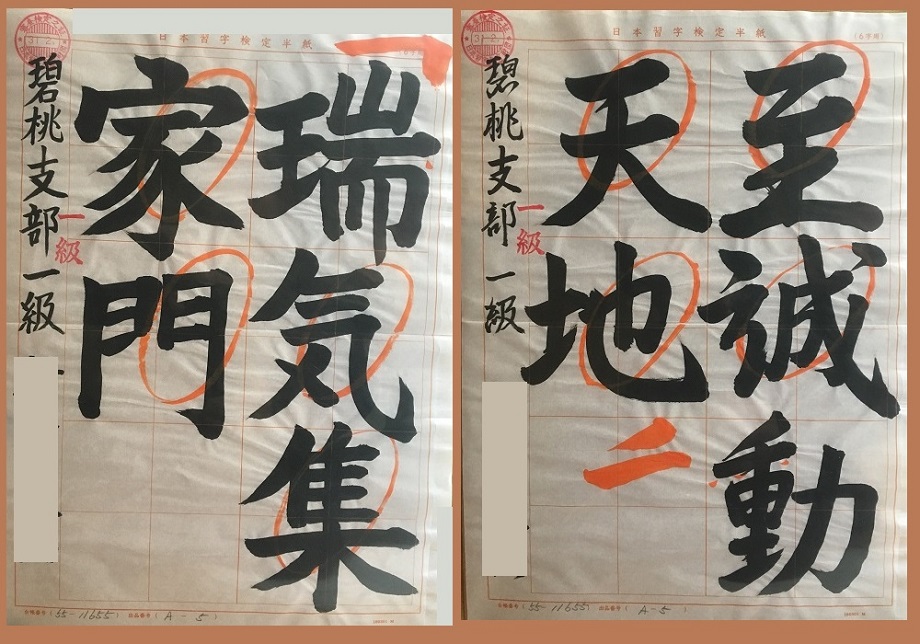 日本習字検定半紙
瑞気集
家門
碧桃支部 一級
一級
31.2.
(55-11655) 出品番号 (A-5)
日本習字検定半紙
至誠動
天地
二
碧桃支部 一級
一級
31.2.
(55-11655) 出品番号 (A-5)